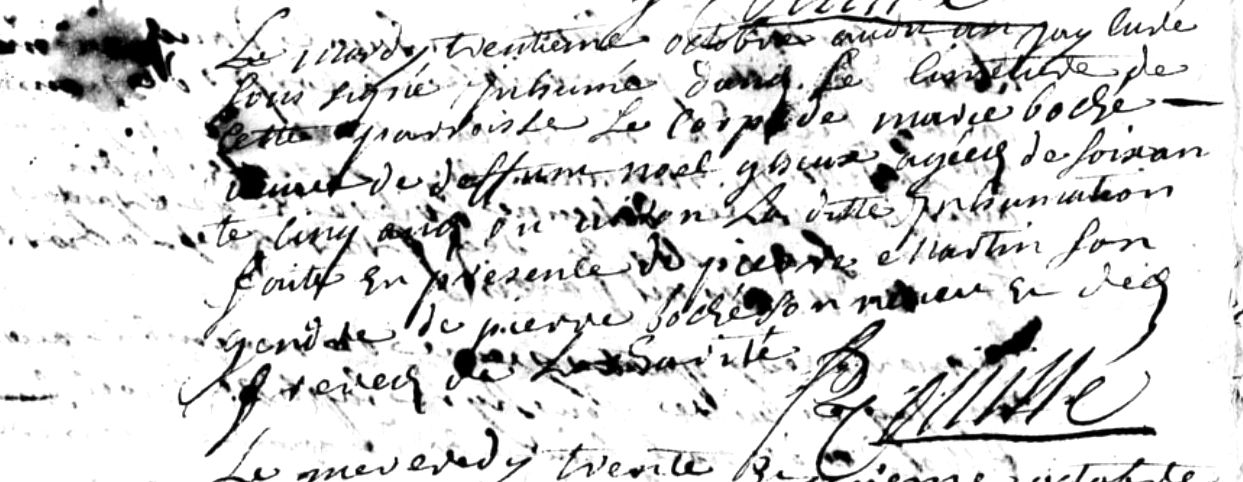 Le mardy trentieme octobre audit an jay curé
sous signé inhumé dans le cimetiere de
cette parroisse le corps de marie boché
veuve de deffunt noel agée de soixan
te cinq ans ou environ la ditte inhumation
faite en presence de pierre martin son
gendre de pierre boché son neveu et des
freres de la Sainté
Le mercredy trente octobre